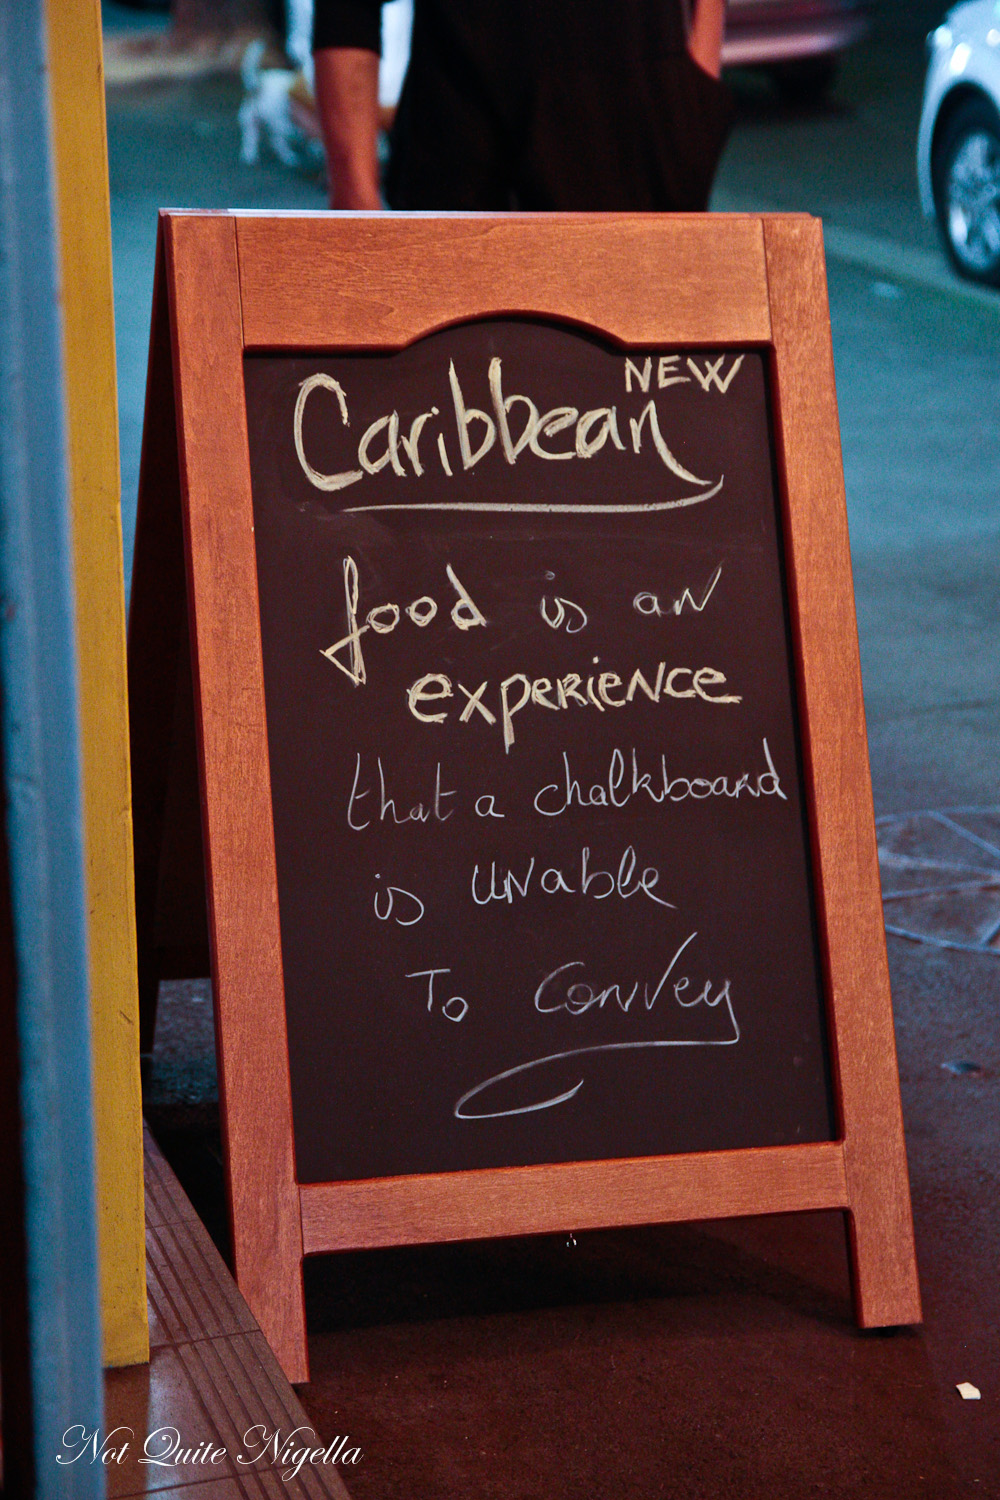 NEW
Caribbean
food is an
experience
that a chalkboard
is unable
To Convey
Not Quite Nigella